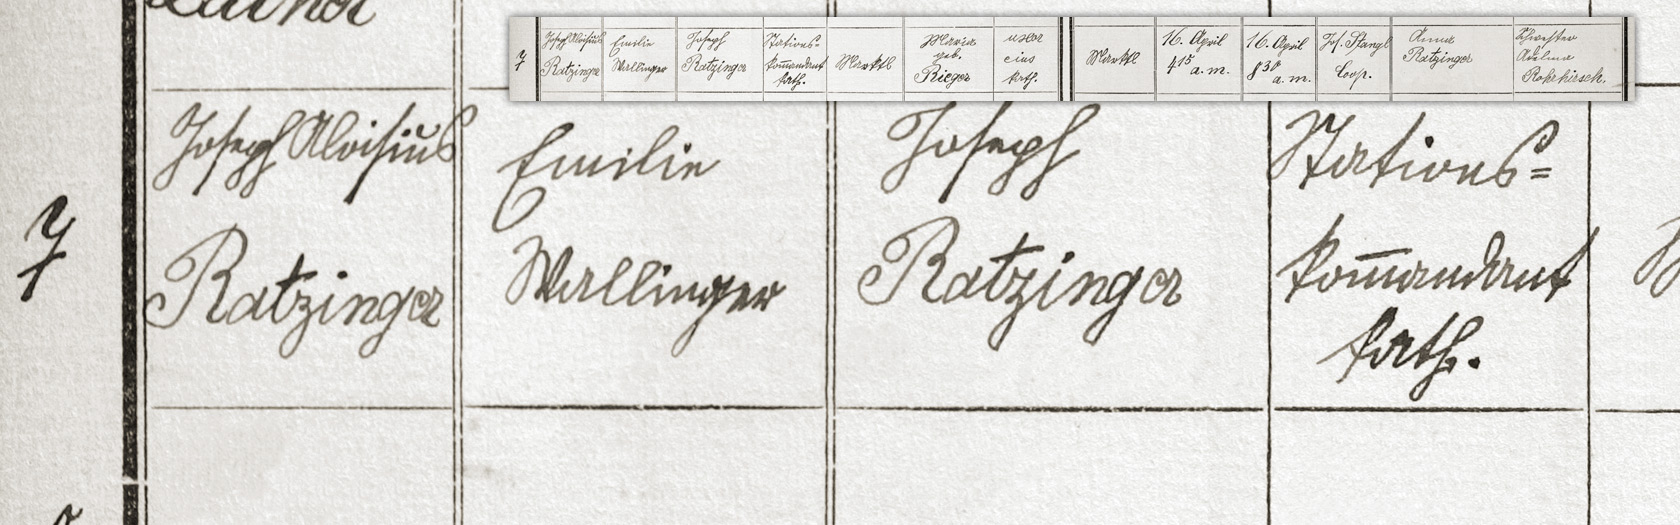 7
Joseph Aloisius
Ratzinger
Emilie
Wallinger
Joseph
Ratzinger
Stations=
kom̄andant
kath.
Marktl
Maria
geb.
Rieger
uxor
eius
kath.
Marktl
16. April
4 15 a.m.
16. April
8 30 a.m.
Jos. Stangl
Coop.
Anna
Ratzinger
Schwester
Adelma
Rohrhirsch.
7
Joseph Aloisius
Ratzinger
Emilie
Wallinger
Joseph
Ratzinger
Stations=
kom̄andant
kath.